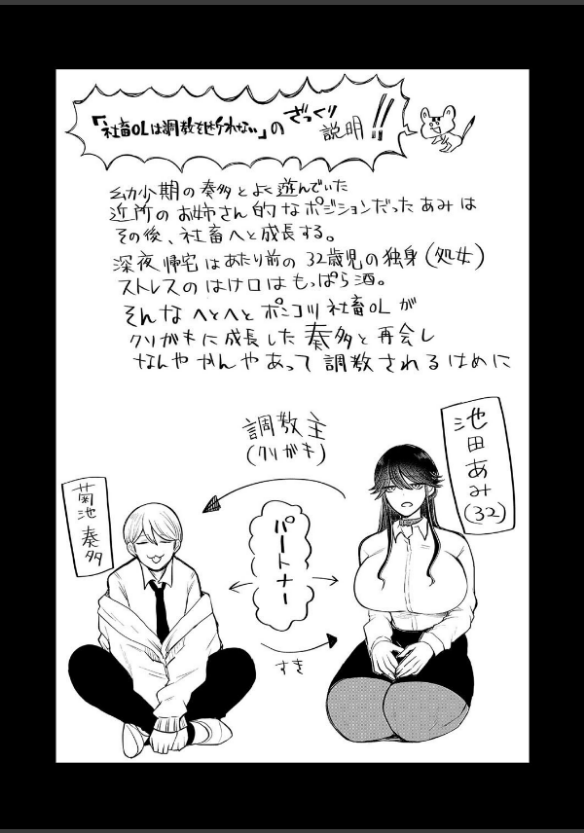 「社畜OLは調教をせがれない」のざっくり説明!!
幼少期の奏多とよく遊んでいた
近所のお姉さん的なポジションだったあみは
その後、社畜へと成長する。
深夜帰宅はあたり前の32歳児の独身(処女)
ストレスのはけ口はもっぱら酒。
そんなへとへとポンコツ社畜OLが
クソガキに成長した奏多と再会し
なんやかんやあって調教されるはめに
調教主
(クソガキ)
池田あみ(32)
菊池奏多
パートナー
すき